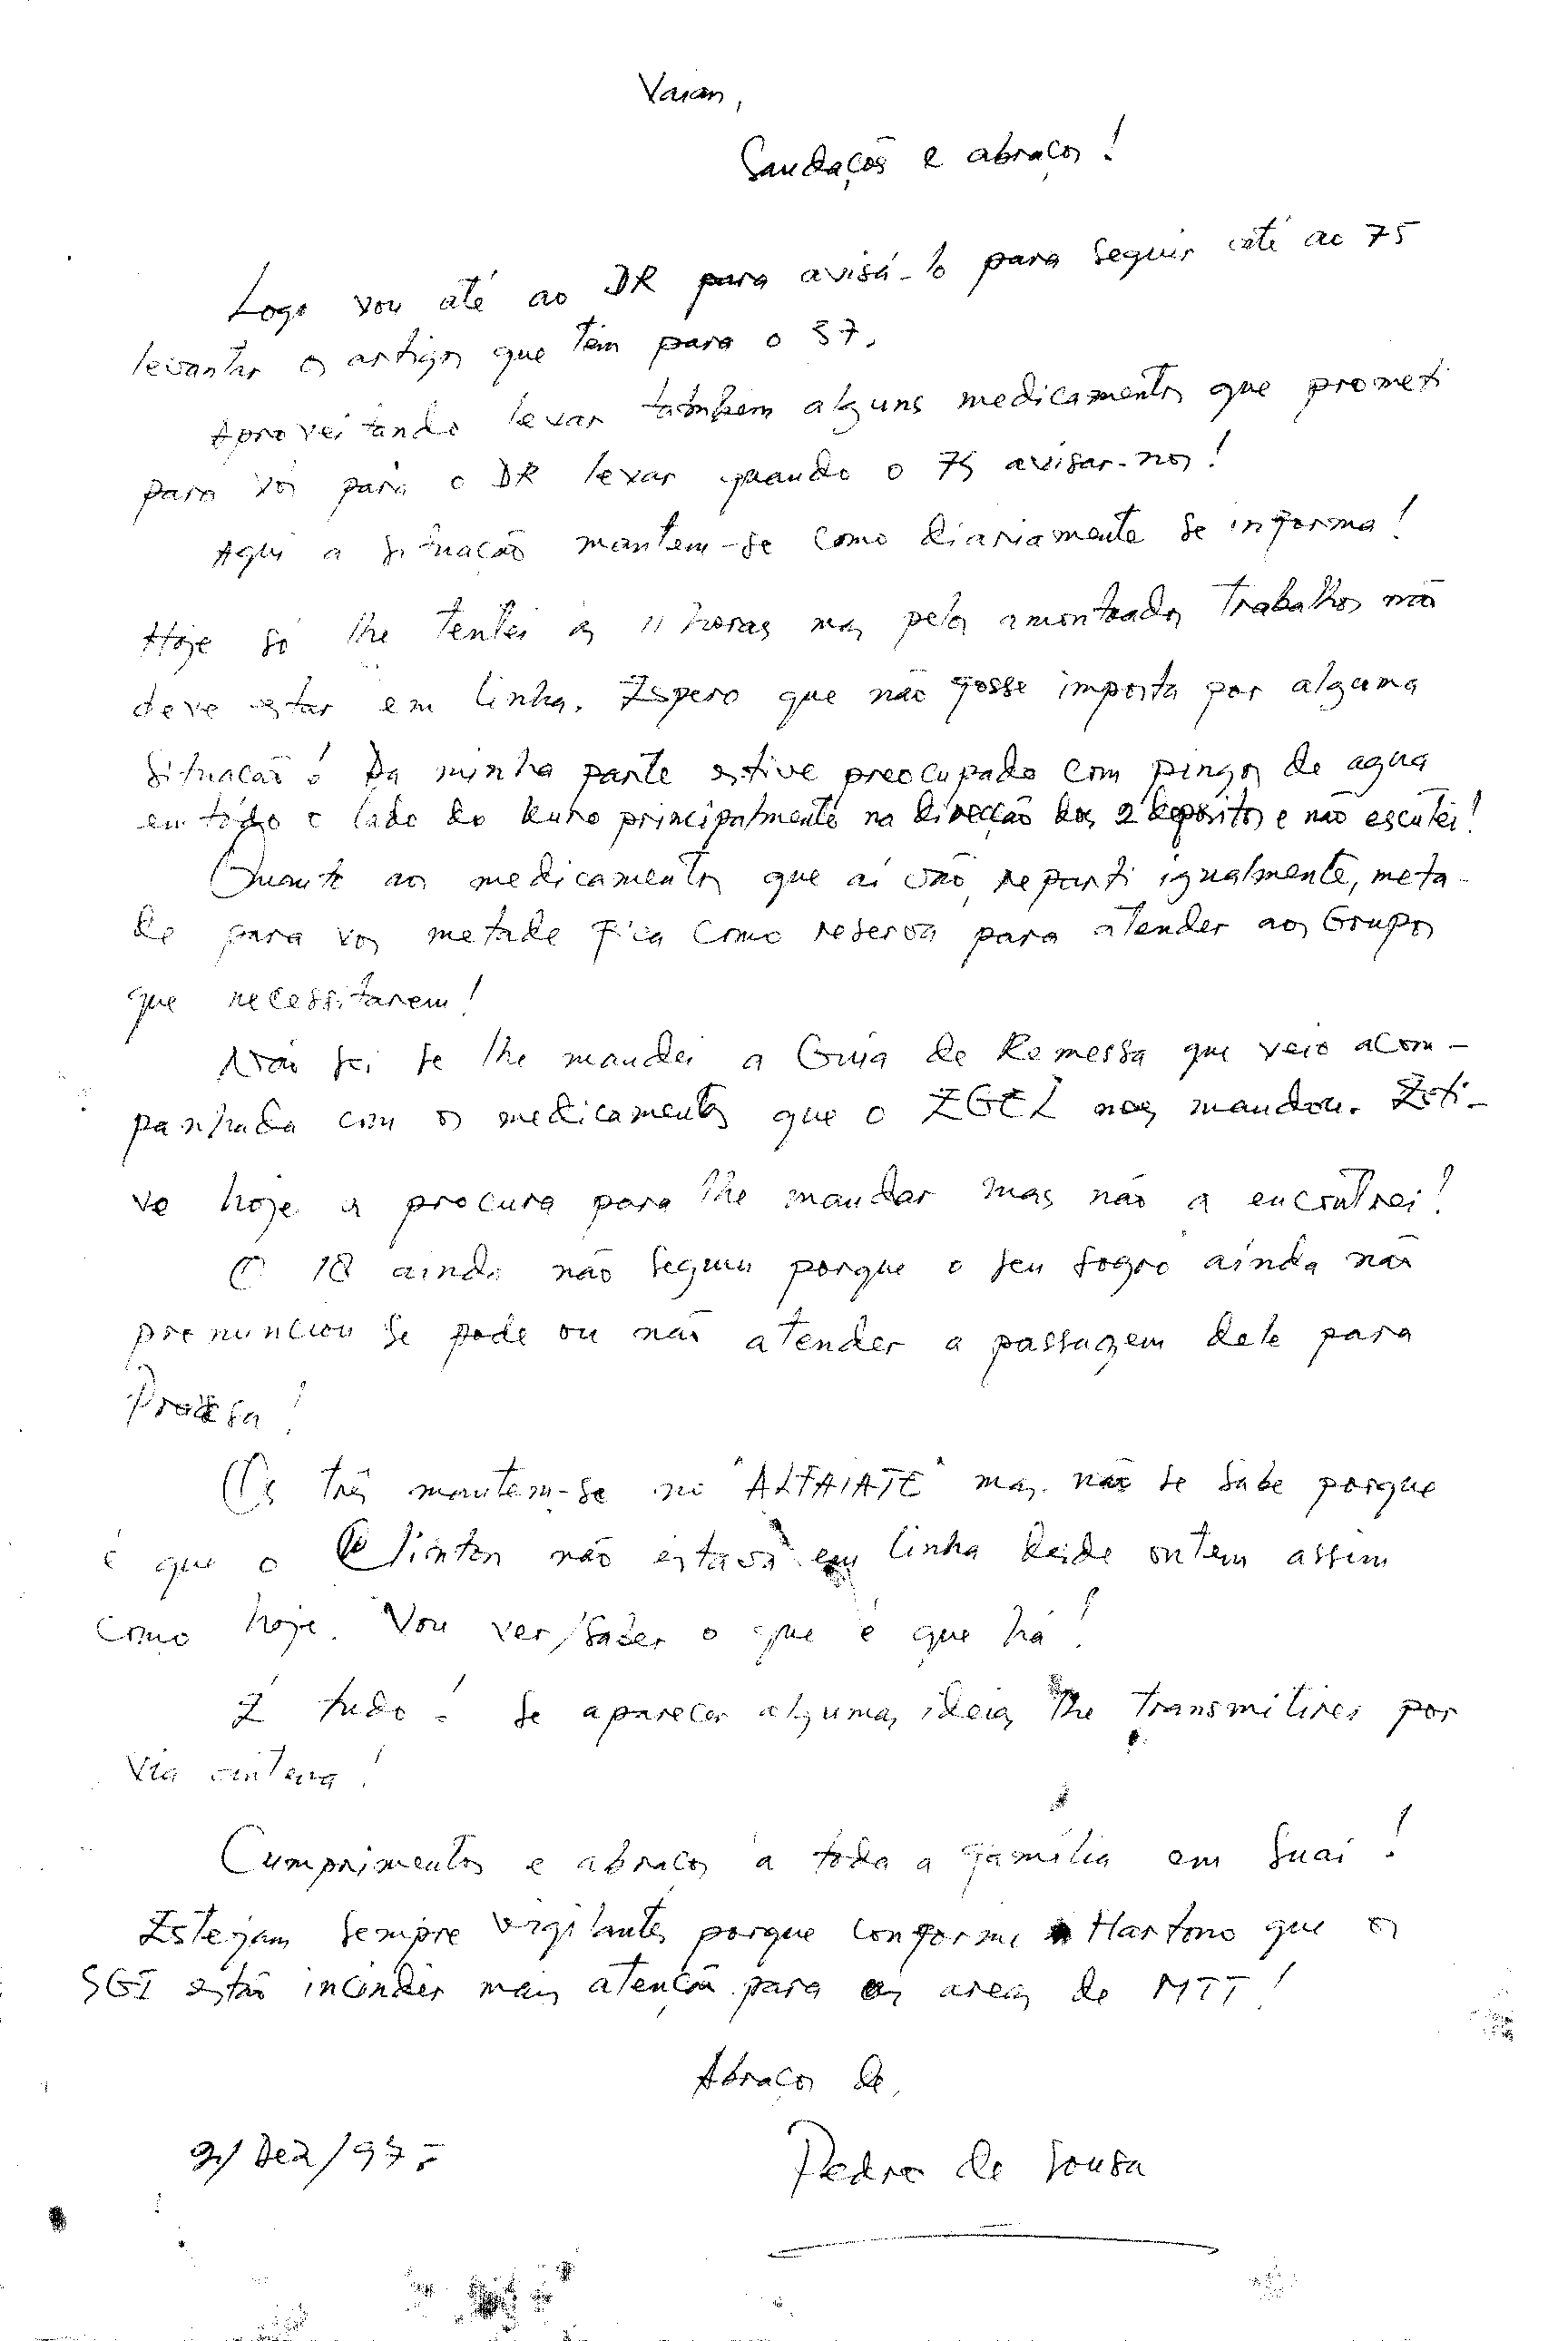 Vaian,
Saudações e abraços!
Logo vou até ao DR para avisá-lo para seguir até ao 75
levantar os artigos que tem para o 57.
Aproveitando levar também alguns medicamentos que prometi
para vós para o DR levar quando o 75 avisar-nos!
Aqui a situação mantem-se como diariamente se informa!
Hoje só lhe tentei as 11 horas mas pelos amontoados trabalhos não
deve estar em linha. Espero que não fosse imposta por alguma
situação! Da minha parte estive preocupado com pingos de agua
em todo o lado do kuro principalmente na direcção dos 2 depósitos e não escutei!
Quanto aos medicamentos que aí vão, reparti igualmente, meta-
de para vos metade fica como reserva para atender aos Grupos
que necessitarem!
Não sei se lhe mandei a Guia de Remessa que veio acom-
panhada com os medicamentos que o EGEL nos mandou. Esti-
ve hoje a procura para lhe mandar mas não a encontrei!
O 18 ainda não seguiu porque o seu sogro ainda não
pronunciou se pode ou não atender a passagem dele para
!
Os três mantem-se no "ALFAIATE" mas não se sabe porque
é que o Clinton não estava em linha desde ontem assim
como hoje. Vou ver/saber o que é que há!
É tudo! Se aparecer algumas ideias lhe transmitirei por
via antena!
Cumprimentos e abraços a toda a família em Suai!
Estejam sempre vigilantes porque conforme Hartono que os
SGI estão incinder mais atenção para as areas de MTT!
Abraços de,
2/Dez/97.
Pedro de Sousa